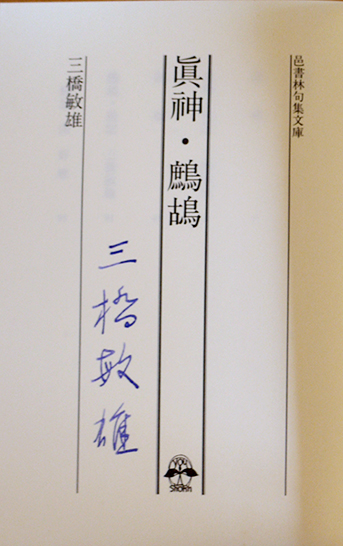 邑書林句集文庫
眞神・鷓鴣
三橋敏雄
三橋敏雄
YOU
Shorin